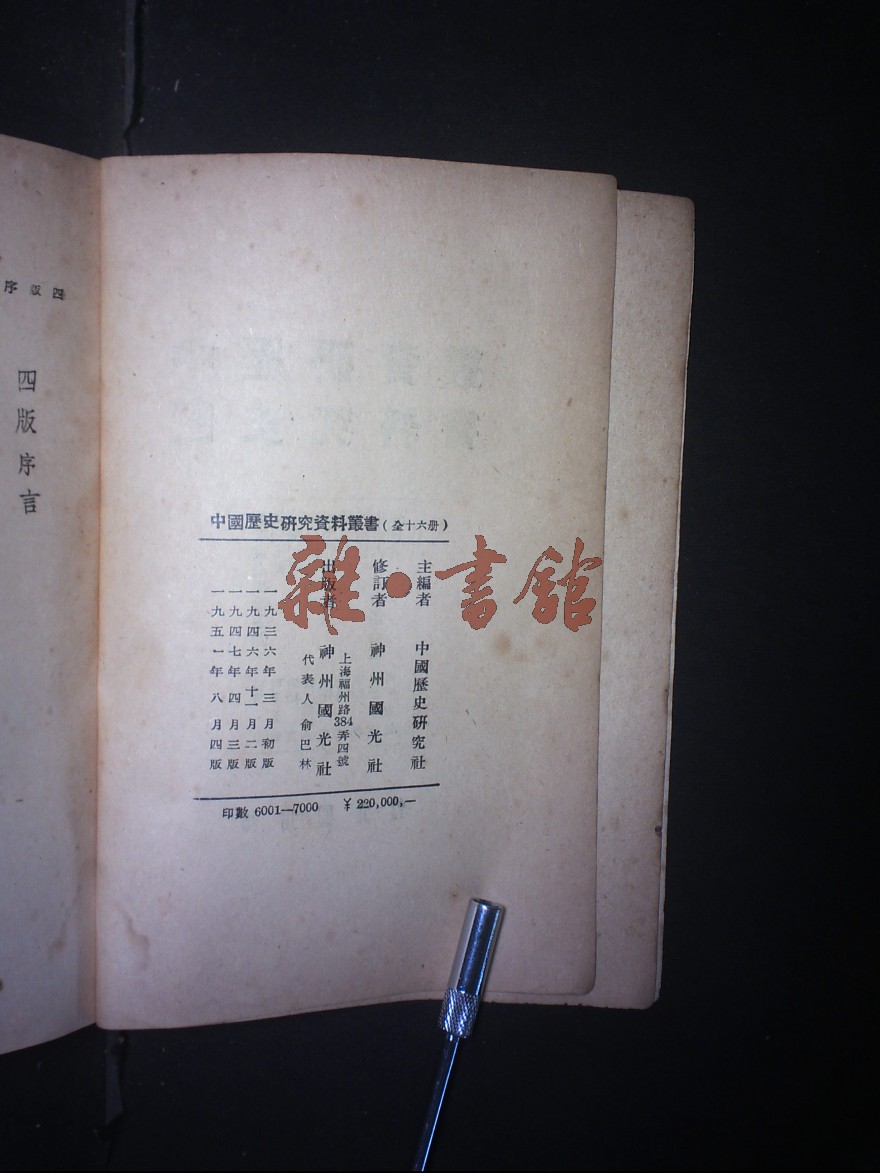 中國歷史研究資料叢書(全十六册)
主編者 中國歷史研究社
修訂者 神州國光社
上海福州路384弄四號
出版者 神州國光社
代表人俞巴林
一九三六年三月初版
一九四六年十一月二版
一九四七年四月三版
一九五一年八月四版
印數 6001—7000 ¥ 220,000,—
四版序
四版序言
雜·書館